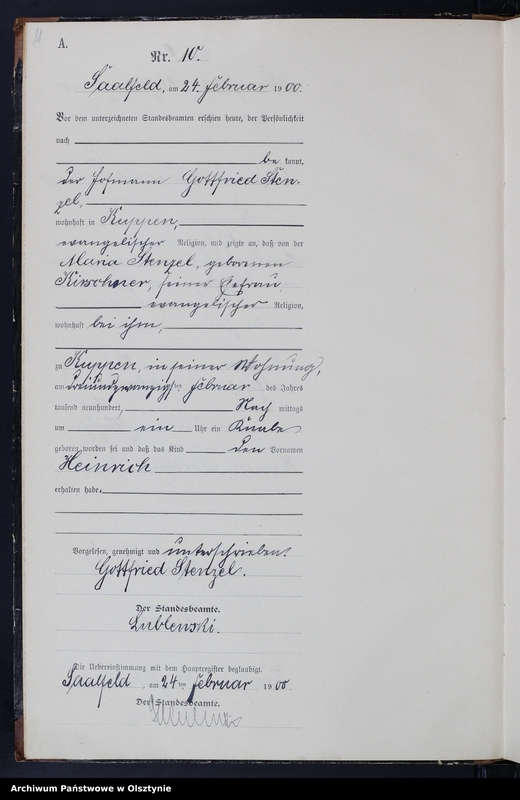 A.
Nr. 10.
Saalfeld, am 24. Februar 1900.
Vor dem unterzeichneten Standesbeamten erschien heute, der Persönlichkeit
nach
be kannt,
der Hofmann Gottfried Sten-
zel,
wohnhaft in Kuppen,
evangelischer Religion, und zeigte an, daß von der
Maria Stenzel, geborenen
Kirschner, seiner Ehefrau,
evangelischer Religion,
wohnhaft bei ihm,
zu Kuppen, in seiner Wohnung,
am dreiundzwanzigsten Februar des Jahres
tausend neunhundert, Nach mittags
um ein Uhr ein Knabe
geboren worden sei und daß das Kind den Vornamen
Heinrich
erhalten habe.
Vorgelesen, genehmigt und unterschrieben.
Gottfried Stenzel.
Der Standesbeamte.
Lublenski.
Die Uebereinstimmung mit dem Hauptregister beglaubigt.
Saalfeld, am 24ten Februar 1900.
Der Standesbeamte.
Archiwum Państwowe w Olsztynie